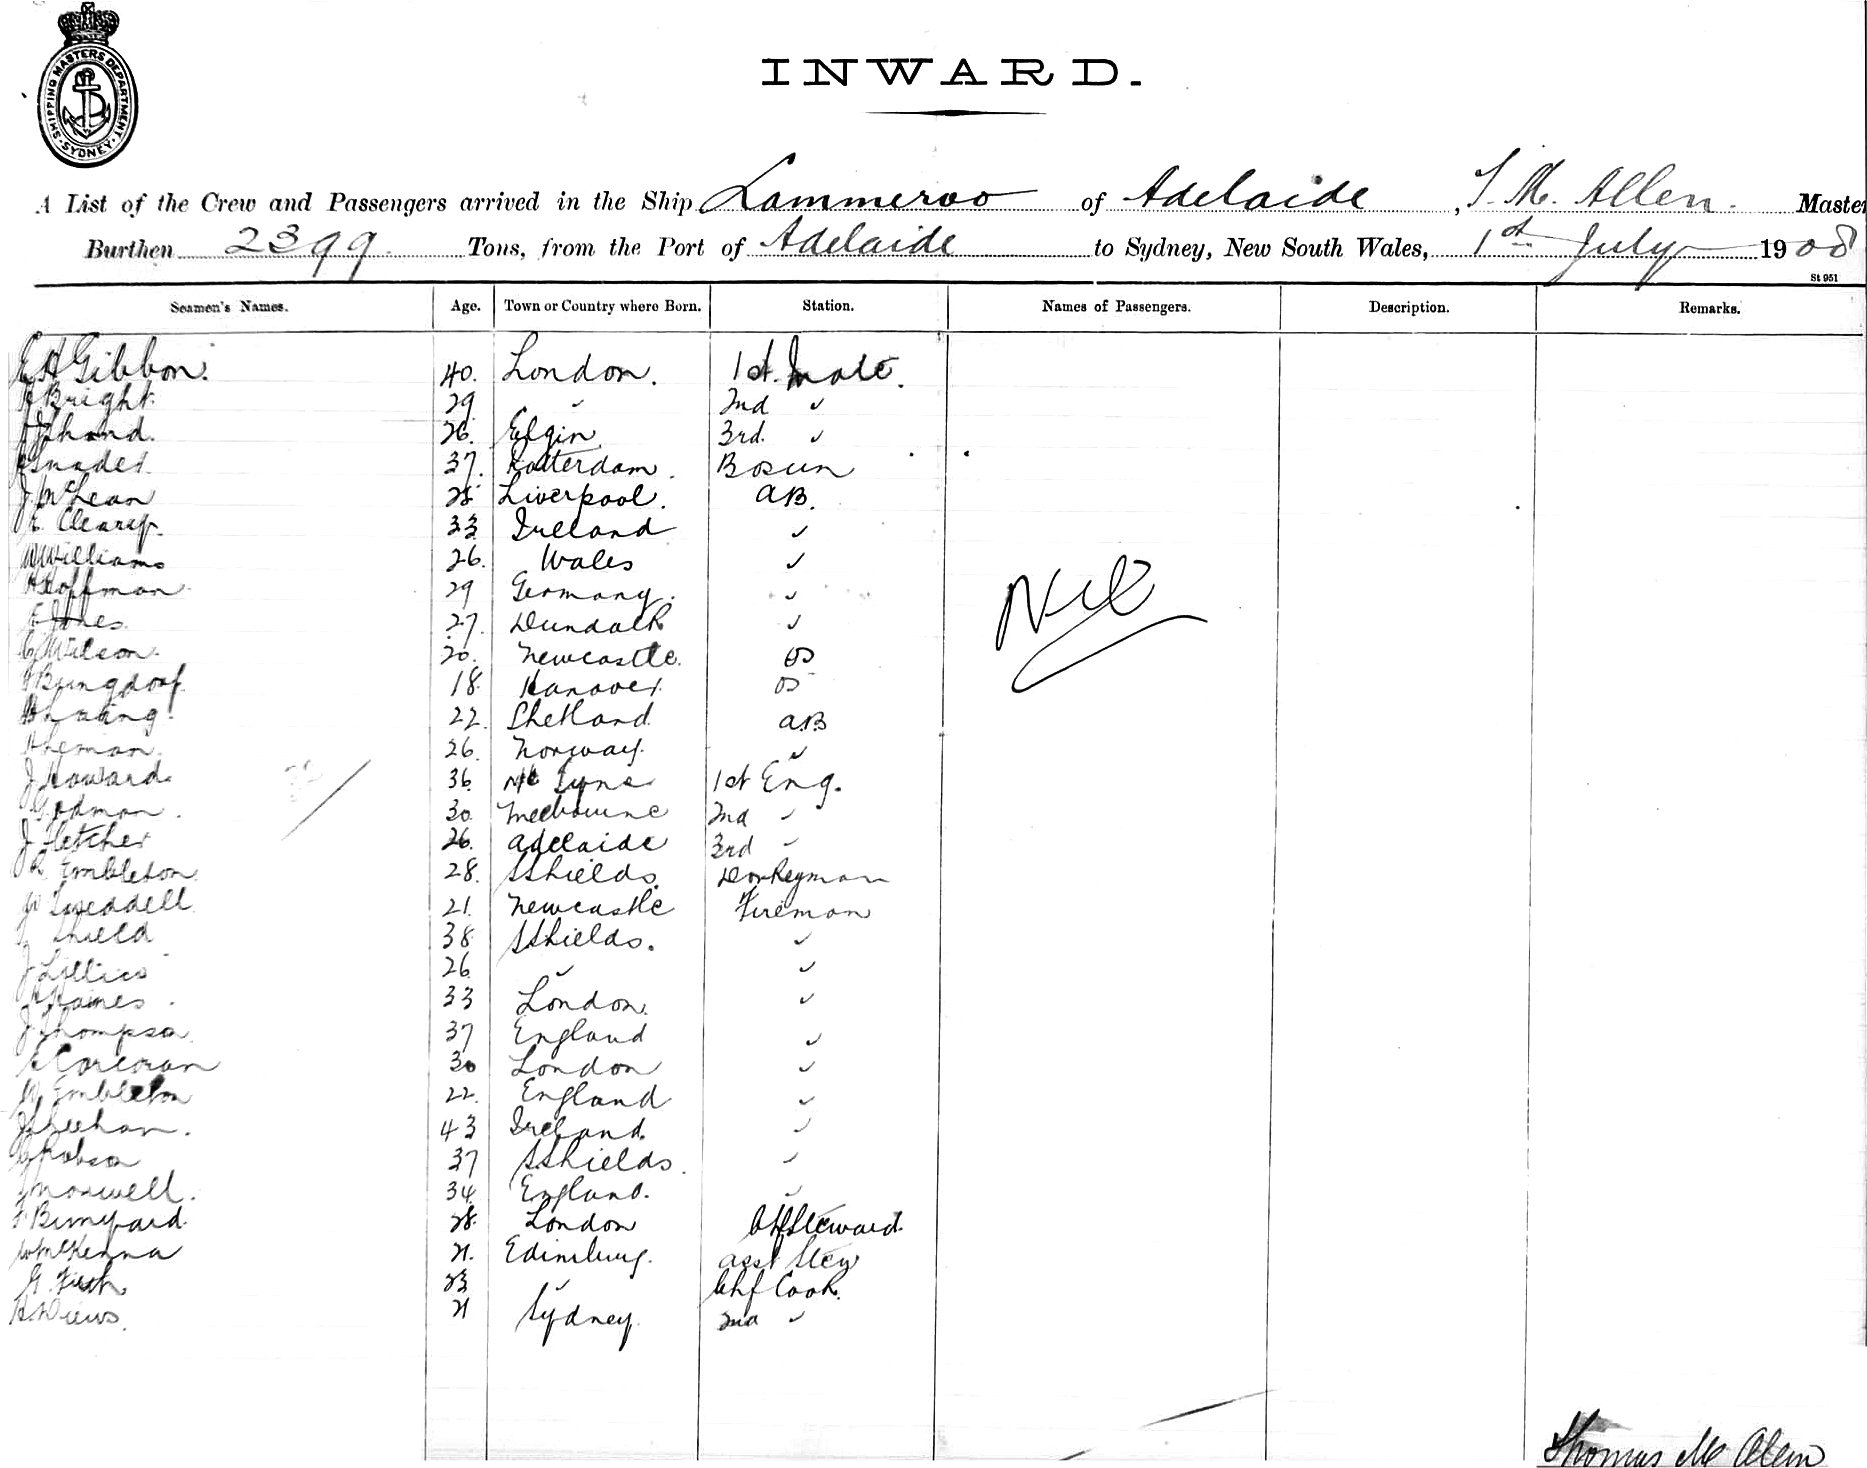 SHIPPING MASTERS DEPARTMENT. SYDNEY
INWARD.
A List of the Crew and Passengers arrived in the Ship Lammeroo of Adelaide, T. M. Allen. Master
Burthen 2399 Tons, from the Port of Adelaide to Sydney, New South Wales, 1st July 1908
St 951
Seamen's Names. Age. Town or Country where Born. Station. Names of Passengers. Description. Remarks.
E H Gibbon. 40. London. 1st. Mate.
Bright. 29 " 2nd "
J Shand. 26. Elgin. 3rd. "
37. Rotterdam. Bosun
J McLean 25 Liverpool. AB.
Cleary. 33 Ireland "
W Williams 26. Wales "
H Hoffman 29 Germany. "
E Jones 27. Dundalk "
C Wilson. 20. Newcastle. OS
18. Hanover. OS
22. Shetland AB
26. Norway. "
J Howard. 36. Tyne 1st Eng.
30. Melbourne 2nd "
J Fletcher 26. Adelaide 3rd "
R Embleton 28. S Shields. Donkeyman
W Tweddell 21. Newcastle Fireman
Shield 38 S Shields. "
J Lillico 26 " "
Haines. 33 London. "
J Thompson 37 England "
Corcoran 30 London "
W Embleton 22. England "
J Sheehan. 43 Ireland. "
G Robson 37 S Shields. "
Maxwell. 34 England. "
F Bunyard 28. London Chf Steward.
W McKenna 21. Edinburg. Asst Stew
G. 23 " Chf Cook.
H. Views. 21 Sydney. 2nd "
Nil
Thomas M Allen